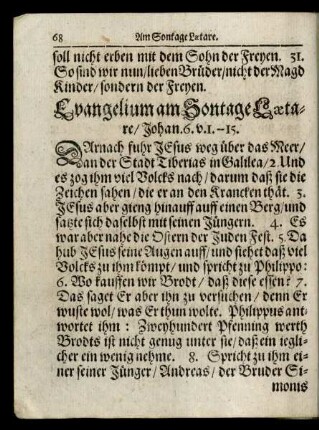 68 Am Sontage Lætare.
soll nicht erben mit dem Sohn der Freyen. 31.
So sind wir nun/lieben Brüder/nicht der Magd
Kinder/ sondern der Freyen.
Evangelium am Sontage Læta-
re/ Johan. 6. v. 1. -15.
DArnach fuhr JEsus weg über das Meer/
an der Stadt Tiberias in Galilea/ 2. Und
es zog ihm viel Volcks nach/ darum daß sie die
Zeichen sahen/ die er an den Krancken thät. 3.
JEsus aber gieng hinauff auff einen Berg/und
satzte sich daselbst mit seinen Jüngern. 4. Es
war aber nahe die Ostern der Juden Fest. 5. Da
hub JEsus seine Augen auff/ und siehet daß viel
Volcks zu ihm kömpt/ und spricht zu Philippo:
6. Wo kauffen wir Brodt/ daß diese essen? 7.
Das saget Er aber ihn zu versuchen/ denn Er
wuste wol/ was Er thun wolte. Philippus ant-
wortet ihm: Zweyhundert Pfenning werth
Brodts ist nicht genug unter sie/ daß ein iegli-
cher ein wenig nehme. 8. Spricht zu ihm ei-
ner seiner Jünger/ Andreas/ der Bruder Si-
monis